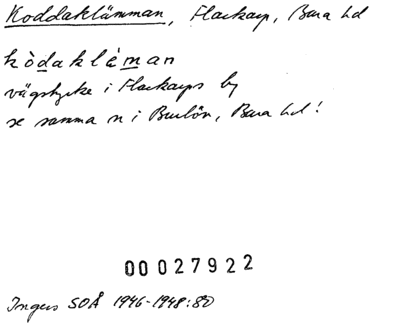 Koddaklämman, Flackarp, Bara hd
kòdakléman
vägstycke i Flackarps by
se samma n i Burlöv, Bara hd!
00027922
Ingers SOÅ 1946-1948:80